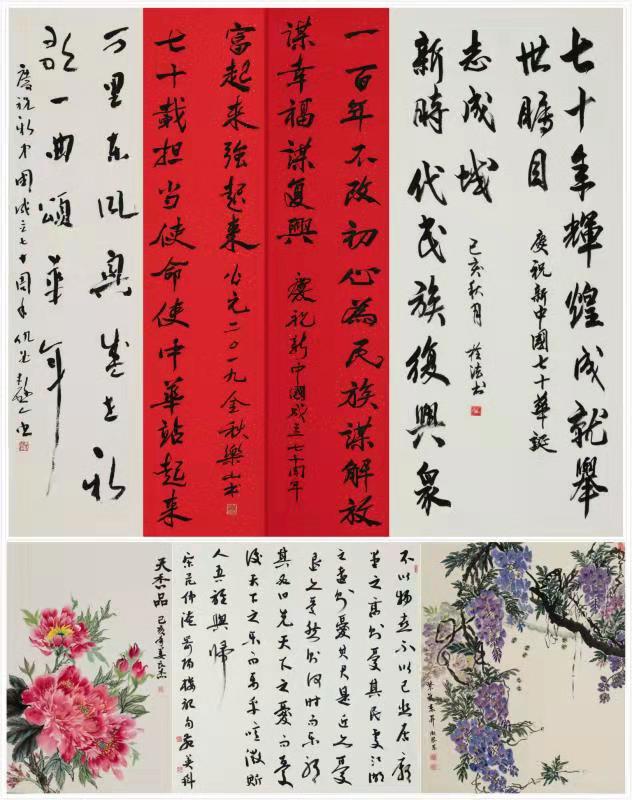 七十年輝煌成就舉
世矚目
慶祝新中國七十華誕
新時代民族復興衆
志成城
己亥秋月
一百年不改初心為民族謀解放
謀幸福謀复興
慶祝新中國成立七十周年
七十載担當使命使中華站起来
富起来強起来
公元二〇一九金秋樂山书
万里东风興盛世新
歌一曲頌華年
慶祝新中國成立七十周年
天香一品
己亥年
不以物喜不以己悲居廟
堂之高則憂其民處江湖
之遠則憂其君是進上憂
退上憂然則何時而樂耶
其必曰先天下之憂而憂
後天下之樂而樂乎噫微斯
人吾誰與歸
宋范仲淹岳陽樓記句